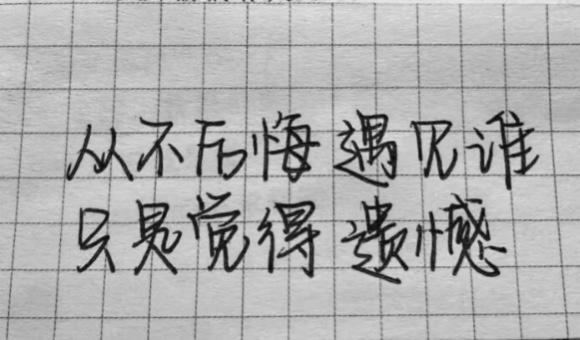 从不后悔遇见谁
只是觉得遗憾